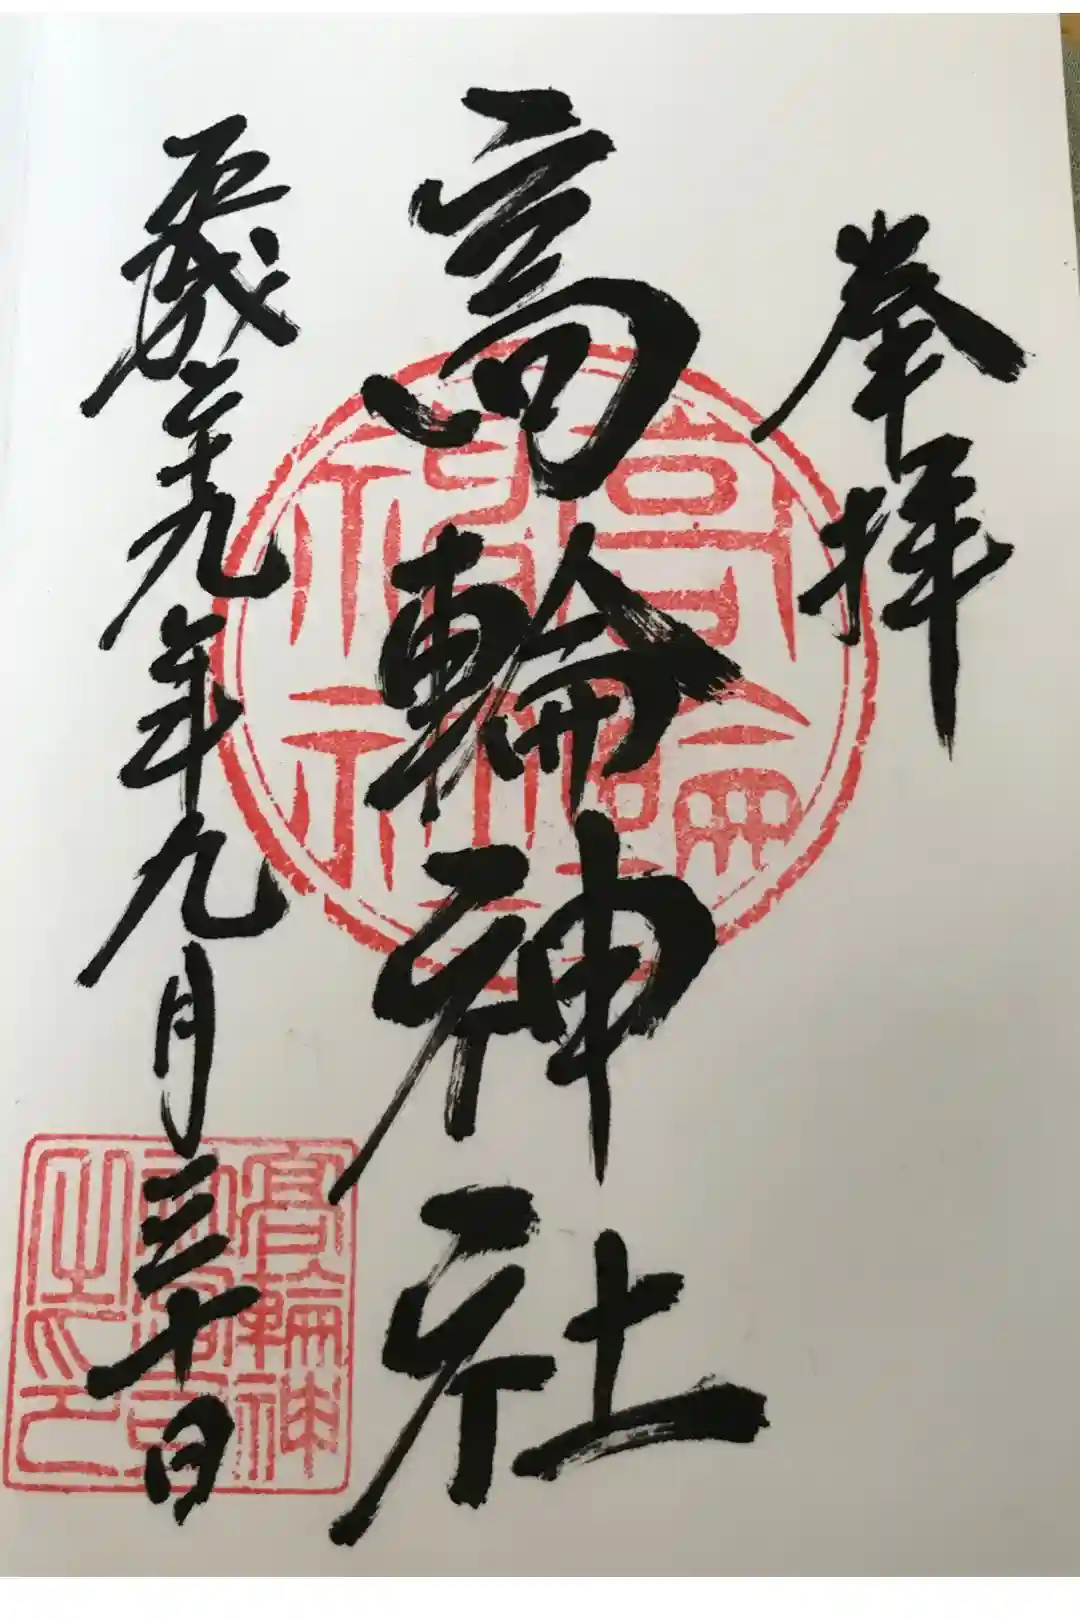 奉拝
高輪神社
平成二十九年九月三十日
高輪神
社
高輪神
之印